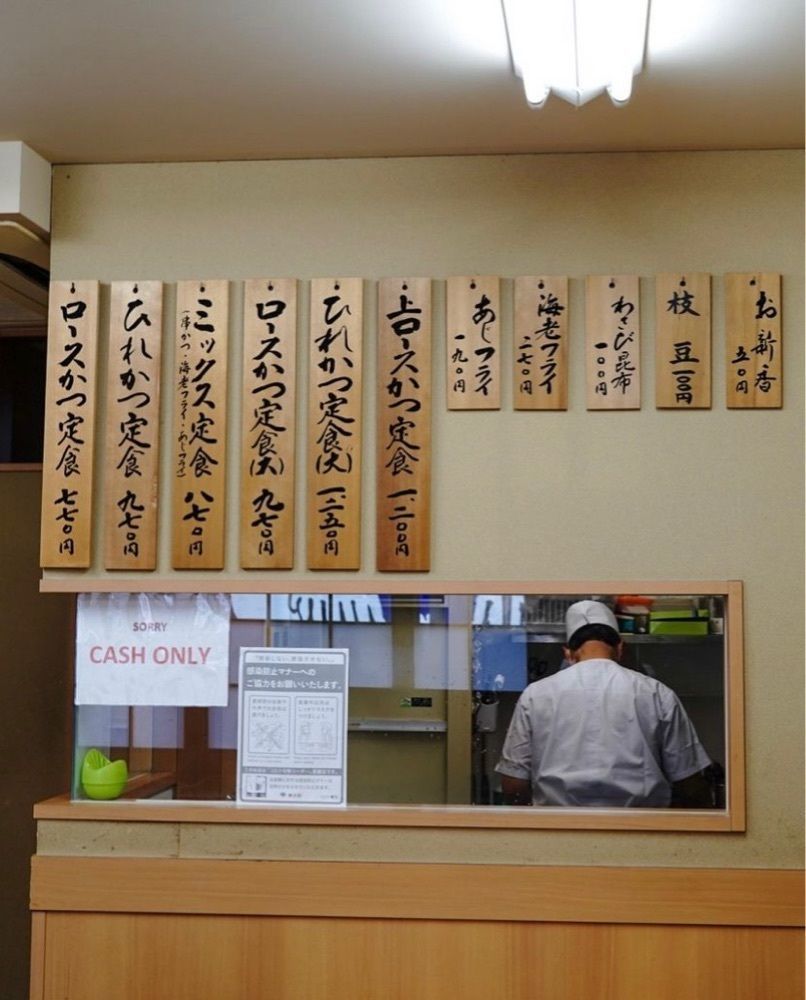 お新香
五〇円
枝豆
一〇〇円
わさび昆布
一〇〇円
海老フライ
二七〇円
あじフライ
一九〇円
上ロースかつ定食 一、二〇〇円
ひれかつ定食(大) 一、二五〇円
ロースかつ定食(大) 九七〇円
ミックス定食 八七〇円
(串かつ・海老フライ・あじフライ)
ひれかつ定食 九七〇円
ロースかつ定食 七七〇円
SORRY
CASH ONLY
感染防止マナーへの
ご協力をお願いいたします。